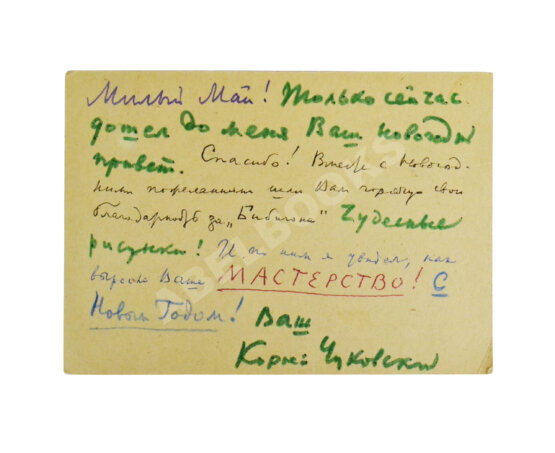 Милый Май! Только сейчас
дошел до меня Ваш новогодн
привет. Спасибо! Вместе с новогод-
ними пожеланиями шлю Вам горячую свою
благодарность за „Бибигона“ Чудесные
рисунки! И по ним я увидел, как
выросло Ваше МАСТЕРСТВО! С
Новым Годом! Ваш
Корней Чуковский